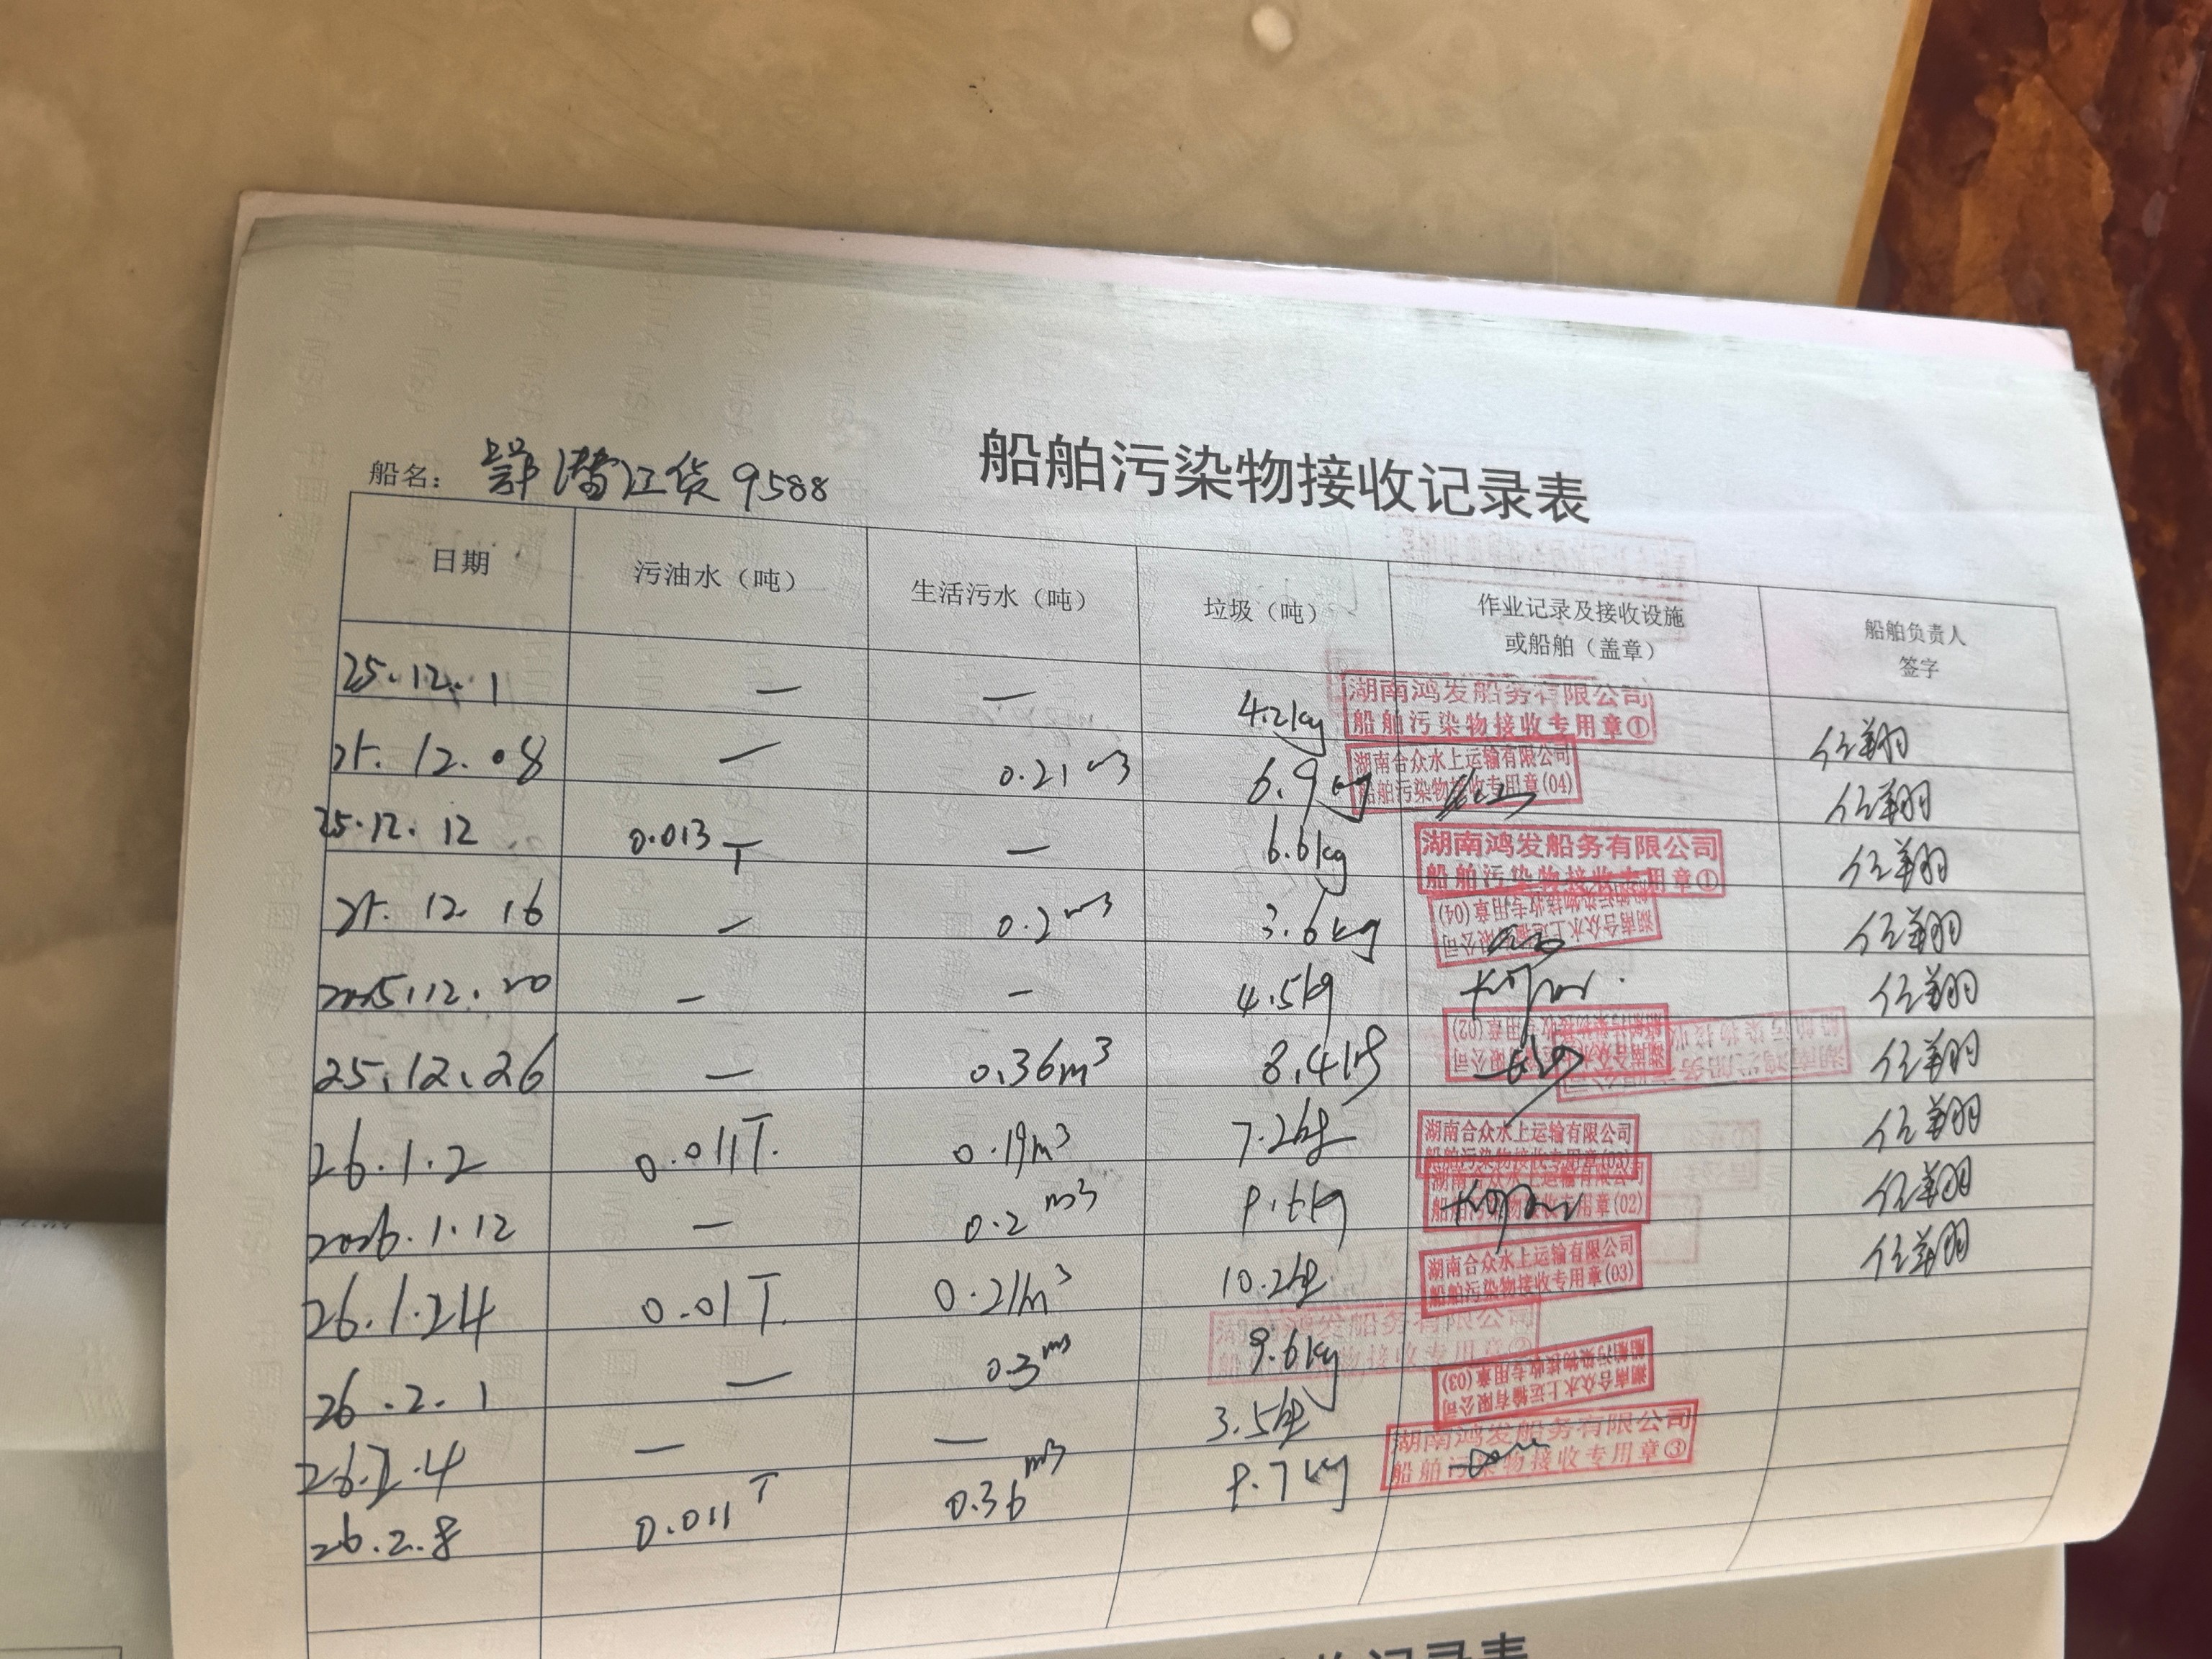 船舶污染物接收记录表
船名： 鄂潜江货9588
日期 污油水（吨） 生活污水（吨） 垃圾（吨） 作业记录及接收设施或船舶（盖章） 船舶负责人签字
25.12.1 — — 4.2kg 湖南鸿发船务有限公司 船舶污染物接收专用章① 任翔
25.12.08 — 0.21m3 6.9kg 湖南合众水上运输有限公司 船舶污染物接收专用章(04) 任翔
25.12.12 0.013T — 6.6kg 湖南鸿发船务有限公司 船舶污染物接收专用章① 任翔
25.12.16 — 0.2m3 3.6kg 湖南合众水上运输有限公司 船舶污染物接收专用章(04) 任翔
2025.12.20 — — 4.5kg 任翔
25.12.26 — 0.36m3 8.4kg 湖南合众水上运输有限公司 船舶污染物接收专用章(02) 任翔
26.1.2 0.011T. 0.19m3 7.2kg 湖南合众水上运输有限公司 船舶污染物接收专用章(03) 任翔
2026.1.12 — 0.2m3 湖南合众水上运输有限公司 船舶污染物接收专用章(02) 任翔
26.1.24 0.01T. 0.21m3 10.2kg 湖南合众水上运输有限公司 船舶污染物接收专用章(03) 任翔
26.2.1 — 0.3m3 9.6kg 湖南鸿发船务有限公司
26.2.4 — — 3.5kg 湖南合众水上运输有限公司 船舶污染物接收专用章(03)
26.2.8 0.011T 0.36m3 湖南鸿发船务有限公司 船舶污染物接收专用章③